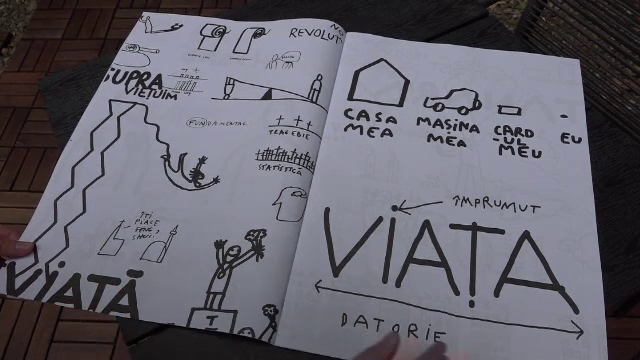 REVOLUT
SUPRA
VIEȚUIM
FUNDAMENTAL
TRAGEDIE
STATISTICĂ
ÎȚI
PLACE
FENG
SHUI?
VIAȚĂ
1
CASA
MEA
MAȘINA
MEA
CARD
-UL
MEU
EU
ÎMPRUMUT
VIAȚA
DATORIE